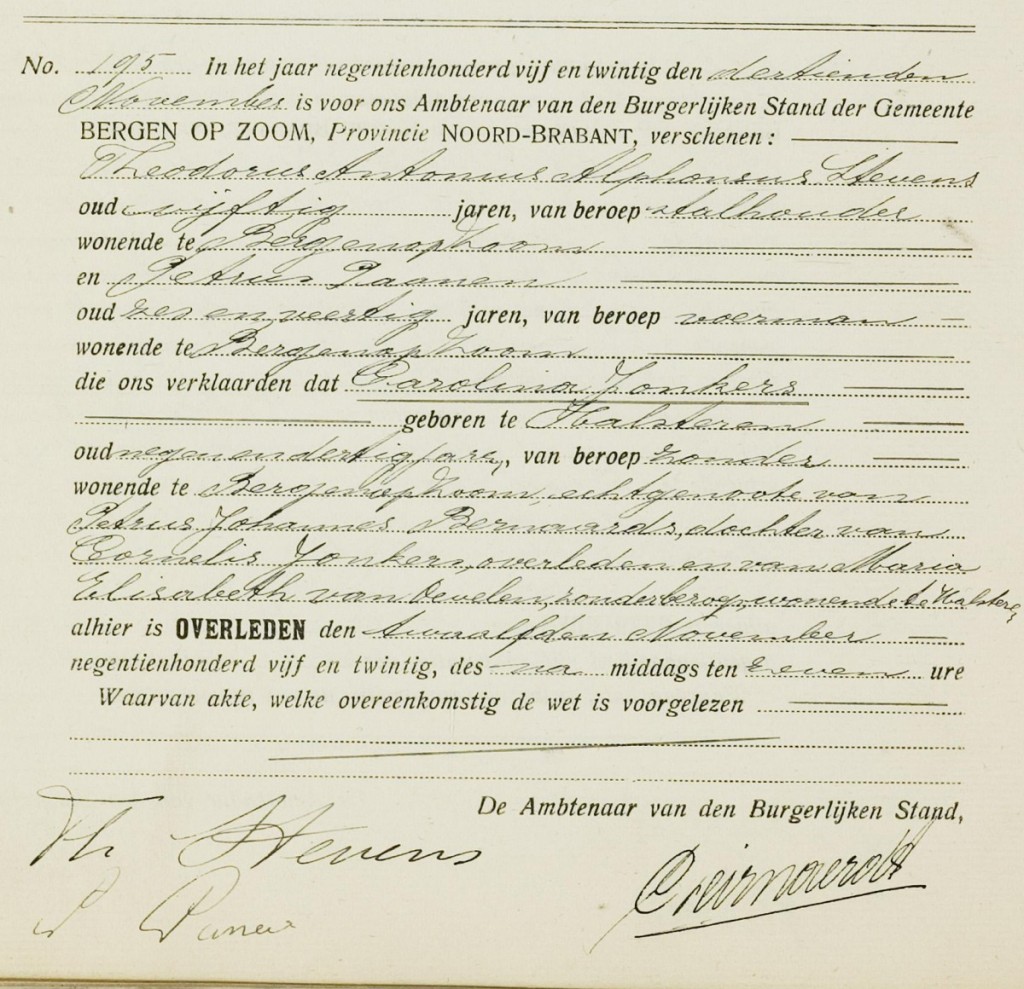 No. 195 In het jaar negentienhonderd vijf en twintig den dertienden
November is voor ons Ambtenaar van den Burgerlijken Stand der Gemeente
BERGEN OP ZOOM, Provincie NOORD-BRABANT, verschenen:
Theodorus Antonius Alphonsus Stevens
oud vijftig jaren, van beroep stalhouder
wonende te Bergen op Zoom
en Petrus Pagnen
oud zes en veertig jaren, van beroep voerman
wonende te Bergen op Zoom
die ons verklaarden dat Carolina Jonkers
geboren te Halsteren
oud negen en dertig jare, van beroep zonder
wonende te Bergen op Zoom, echtgenoote van
Petrus Johannes Bernaards, dochter van
Cornelis Jonkers, overleden en van Maria
Elisabeth van Oevelen, zonder beroep, wonende te Halsteren
alhier is OVERLEDEN den twaalfden November
negentienhonderd vijf en twintig, des na middags ten zeven ure
Waarvan akte, welke overeenkomstig de wet is voorgelezen
De Ambtenaar van den Burgerlijken Stand,
Th Stevens
P